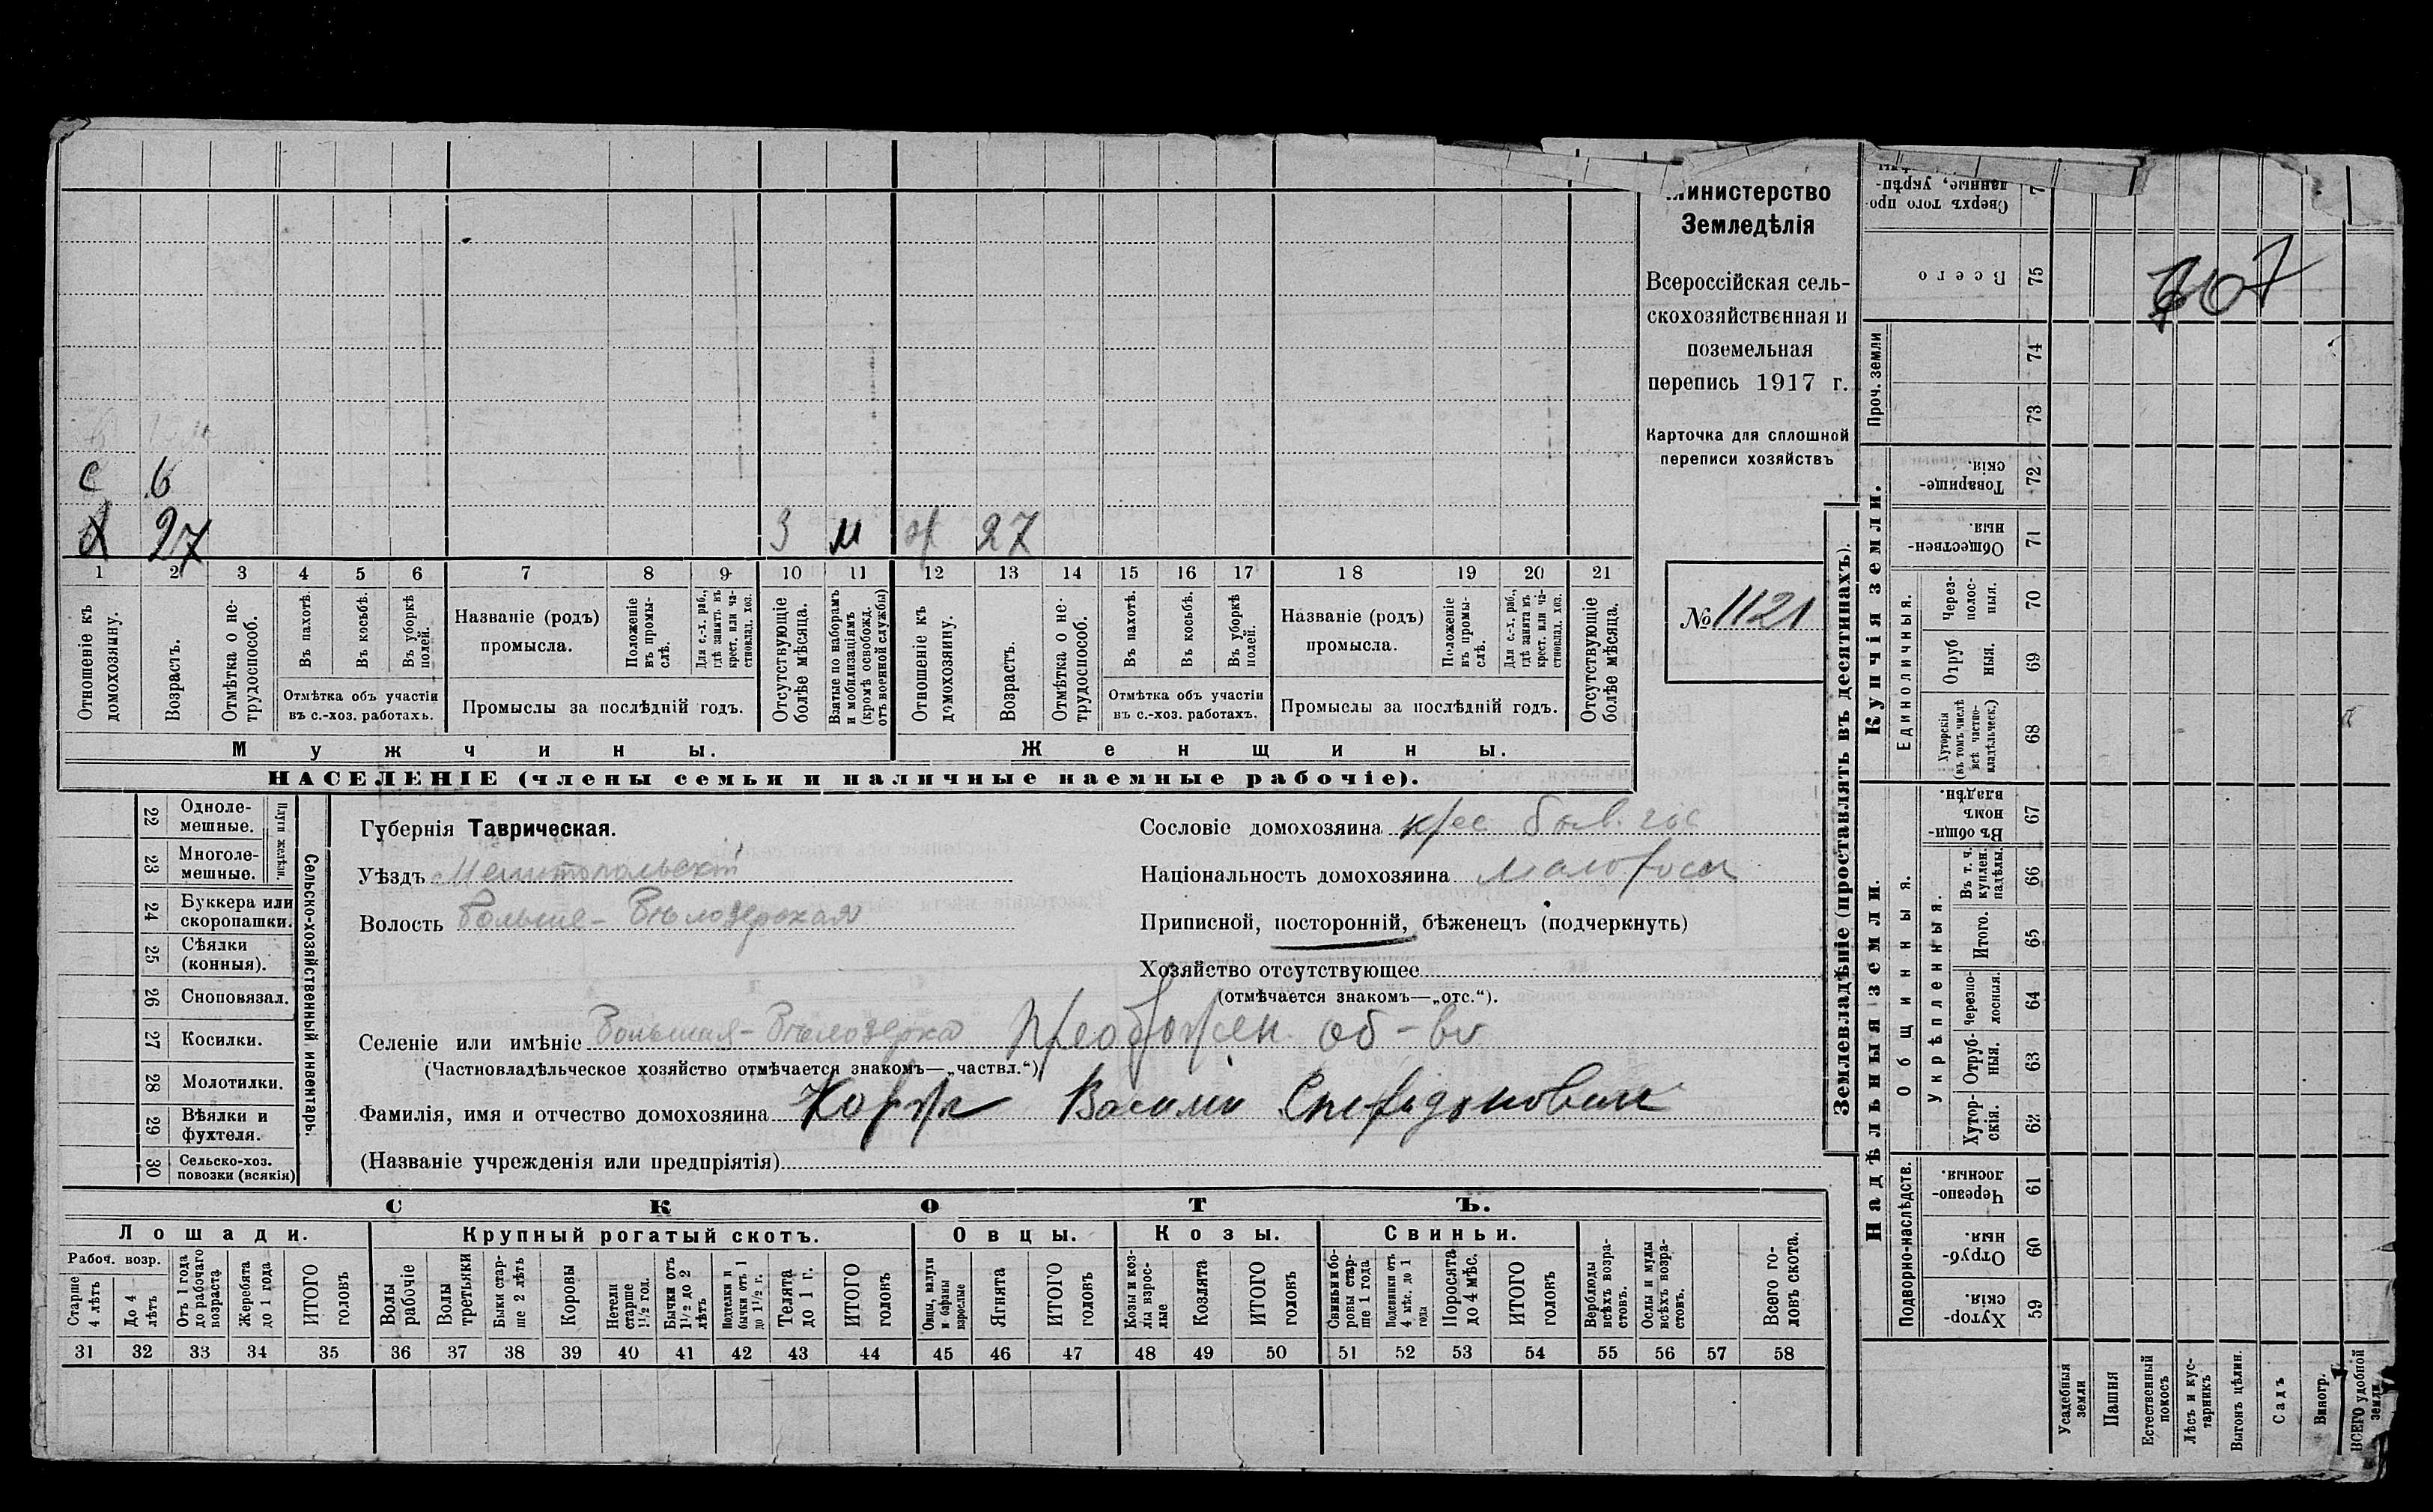 Министерство
Земледѣлія
Всероссійская сель-
скохозяйственная и
поземельная
перепись 1917 г.
Карточка для сплошной
переписи хозяйствъ
№ 1121
607
с 6
х 27 З м ж 27
1 2 3 4 5 6 7 8 9 10 11 12 13 14 15 16 17 18 19 20 21
Отношеніе къ домохозяину.
Возрастъ.
Отмѣтка о не-трудоспособ.
Въ пахотѣ.
Въ косьбѣ.
Въ уборкѣ полей.
Отмѣтка объ участіи
въ с.-хоз. работахъ.
Названіе (родъ)
промысла.
Положеніе въ промы-слѣ.
Для с.-х. раб., гдѣ занятъ въ крест. или ча-стновлад. хоз.
Промыслы за послѣдній годъ.
Отсутствующіе болѣе мѣсяца.
Взятые по наборамъ и мобилизаціямъ (кромѣ освобожд. отъ военной службы)
Отношеніе къ домохозяину.
Возрастъ.
Отмѣтка о не-трудоспособ.
Въ пахотѣ.
Въ косьбѣ.
Въ уборкѣ полей.
Отмѣтка объ участіи
въ с.-хоз. работахъ.
Названіе (родъ)
промысла.
Положеніе въ промы-слѣ.
Для с.-х. раб., гдѣ занята въ крест. или ча-стновлад. хоз.
Промыслы за послѣдній годъ.
Отсутствующіе болѣе мѣсяца.
Мужчины. Женщины.
НАСЕЛЕНІЕ (члены семьи и наличные наемные рабочіе).
22 Одноле-мешные.
23 Многоле-мешные.
Плуги желѣзн.
24 Буккера или скоропашки.
25 Сѣялки (конныя).
26 Сноповязал.
27 Косилки.
28 Молотилки.
29 Вѣялки и фухтеля.
30 Сельско-хоз. повозки (всякія)
Сельско-хозяйственный инвентарь.
Губернія Таврическая.
Уѣздъ Мелитопольскій
Волость Больше-Бѣлозерская
Сословіе домохозяина крес быв. гос
Національность домохозяина малоросс
Приписной, посторонній, бѣженецъ (подчеркнуть)
Хозяйство отсутствующее
(отмѣчается знакомъ—„отс.“).
Селеніе или имѣніе Большая-Бѣлозерка Преображен. об-во
(Частновладѣльческое хозяйство отмѣчается знакомъ—„частвл.“)
Фамилія, имя и отчество домохозяина Василій Спиридонович
(Названіе учрежденія или предпріятія)
СКОТЪ.
Лошади. Крупный рогатый скотъ. Овцы. Козы. Свиньи.
Рабоч. возр.
Старше 4 лѣтъ
До 4 лѣтъ
Отъ 1 года до рабочаго возраста
Жеребята до 1 года
ИТОГО головъ
Волы рабочіе
Волы третьяки
Быки стар-ше 2 лѣтъ
Коровы
Нетели старше 1½ год.
Бычки отъ 1½ до 2 лѣтъ
Подтелки и бычки отъ 1 до 1½ г.
Телята до 1 г.
ИТОГО головъ
Овцы, валухи и бараны взрослые
Ягнята
ИТОГО головъ
Козы и коз-лы взрос-лые
Козлята
ИТОГО головъ
Свиньи и бо-ровы стар-ше 1 года
Подсвинки отъ 4 мѣс. до 1 года
Поросята до 4 мѣс.
ИТОГО головъ
Верблюды всѣхъ возра-стовъ.
Ослы и мулы всѣхъ возра-стовъ.
Всего го-ловъ скота.
31 32 33 34 35 36 37 38 39 40 41 42 43 44 45 46 47 48 49 50 51 52 53 54 55 56 57 58
Землевладѣніе (проставлять въ десятинахъ).
Купчія земли.
Надѣльныя земли.
Сверхъ того про-
данные, укрѣп-
Всего 75
Проч. земли
74
73
Товарище-скія. 72
Обществен-ныя. 71
Единоличныя.
Через-полос-ныя. 70
Отруб ныя. 69
Хуторскія (въ томъ числѣ всѣ частно-владѣльческ.) 68
Общинныя.
Въ общи-номъ владѣн. 67
Укрѣпленныя.
Въ т. ч. куплен. надѣлы. 66
Итого. 65
Черезпо-лосныя. 64
Отруб-ныя. 63
Хутор-скія. 62
Подворно-наслѣдств.
Черезпо-лосныя 61
Отруб-ныя. 60
Хутор-скія. 59
Усадебныя земли
Пашня
Естественный покосъ
Лѣсъ и кус-тарникъ
Выгонъ цѣлин.
Садъ
Виногр.
ВСЕГО удобной земли